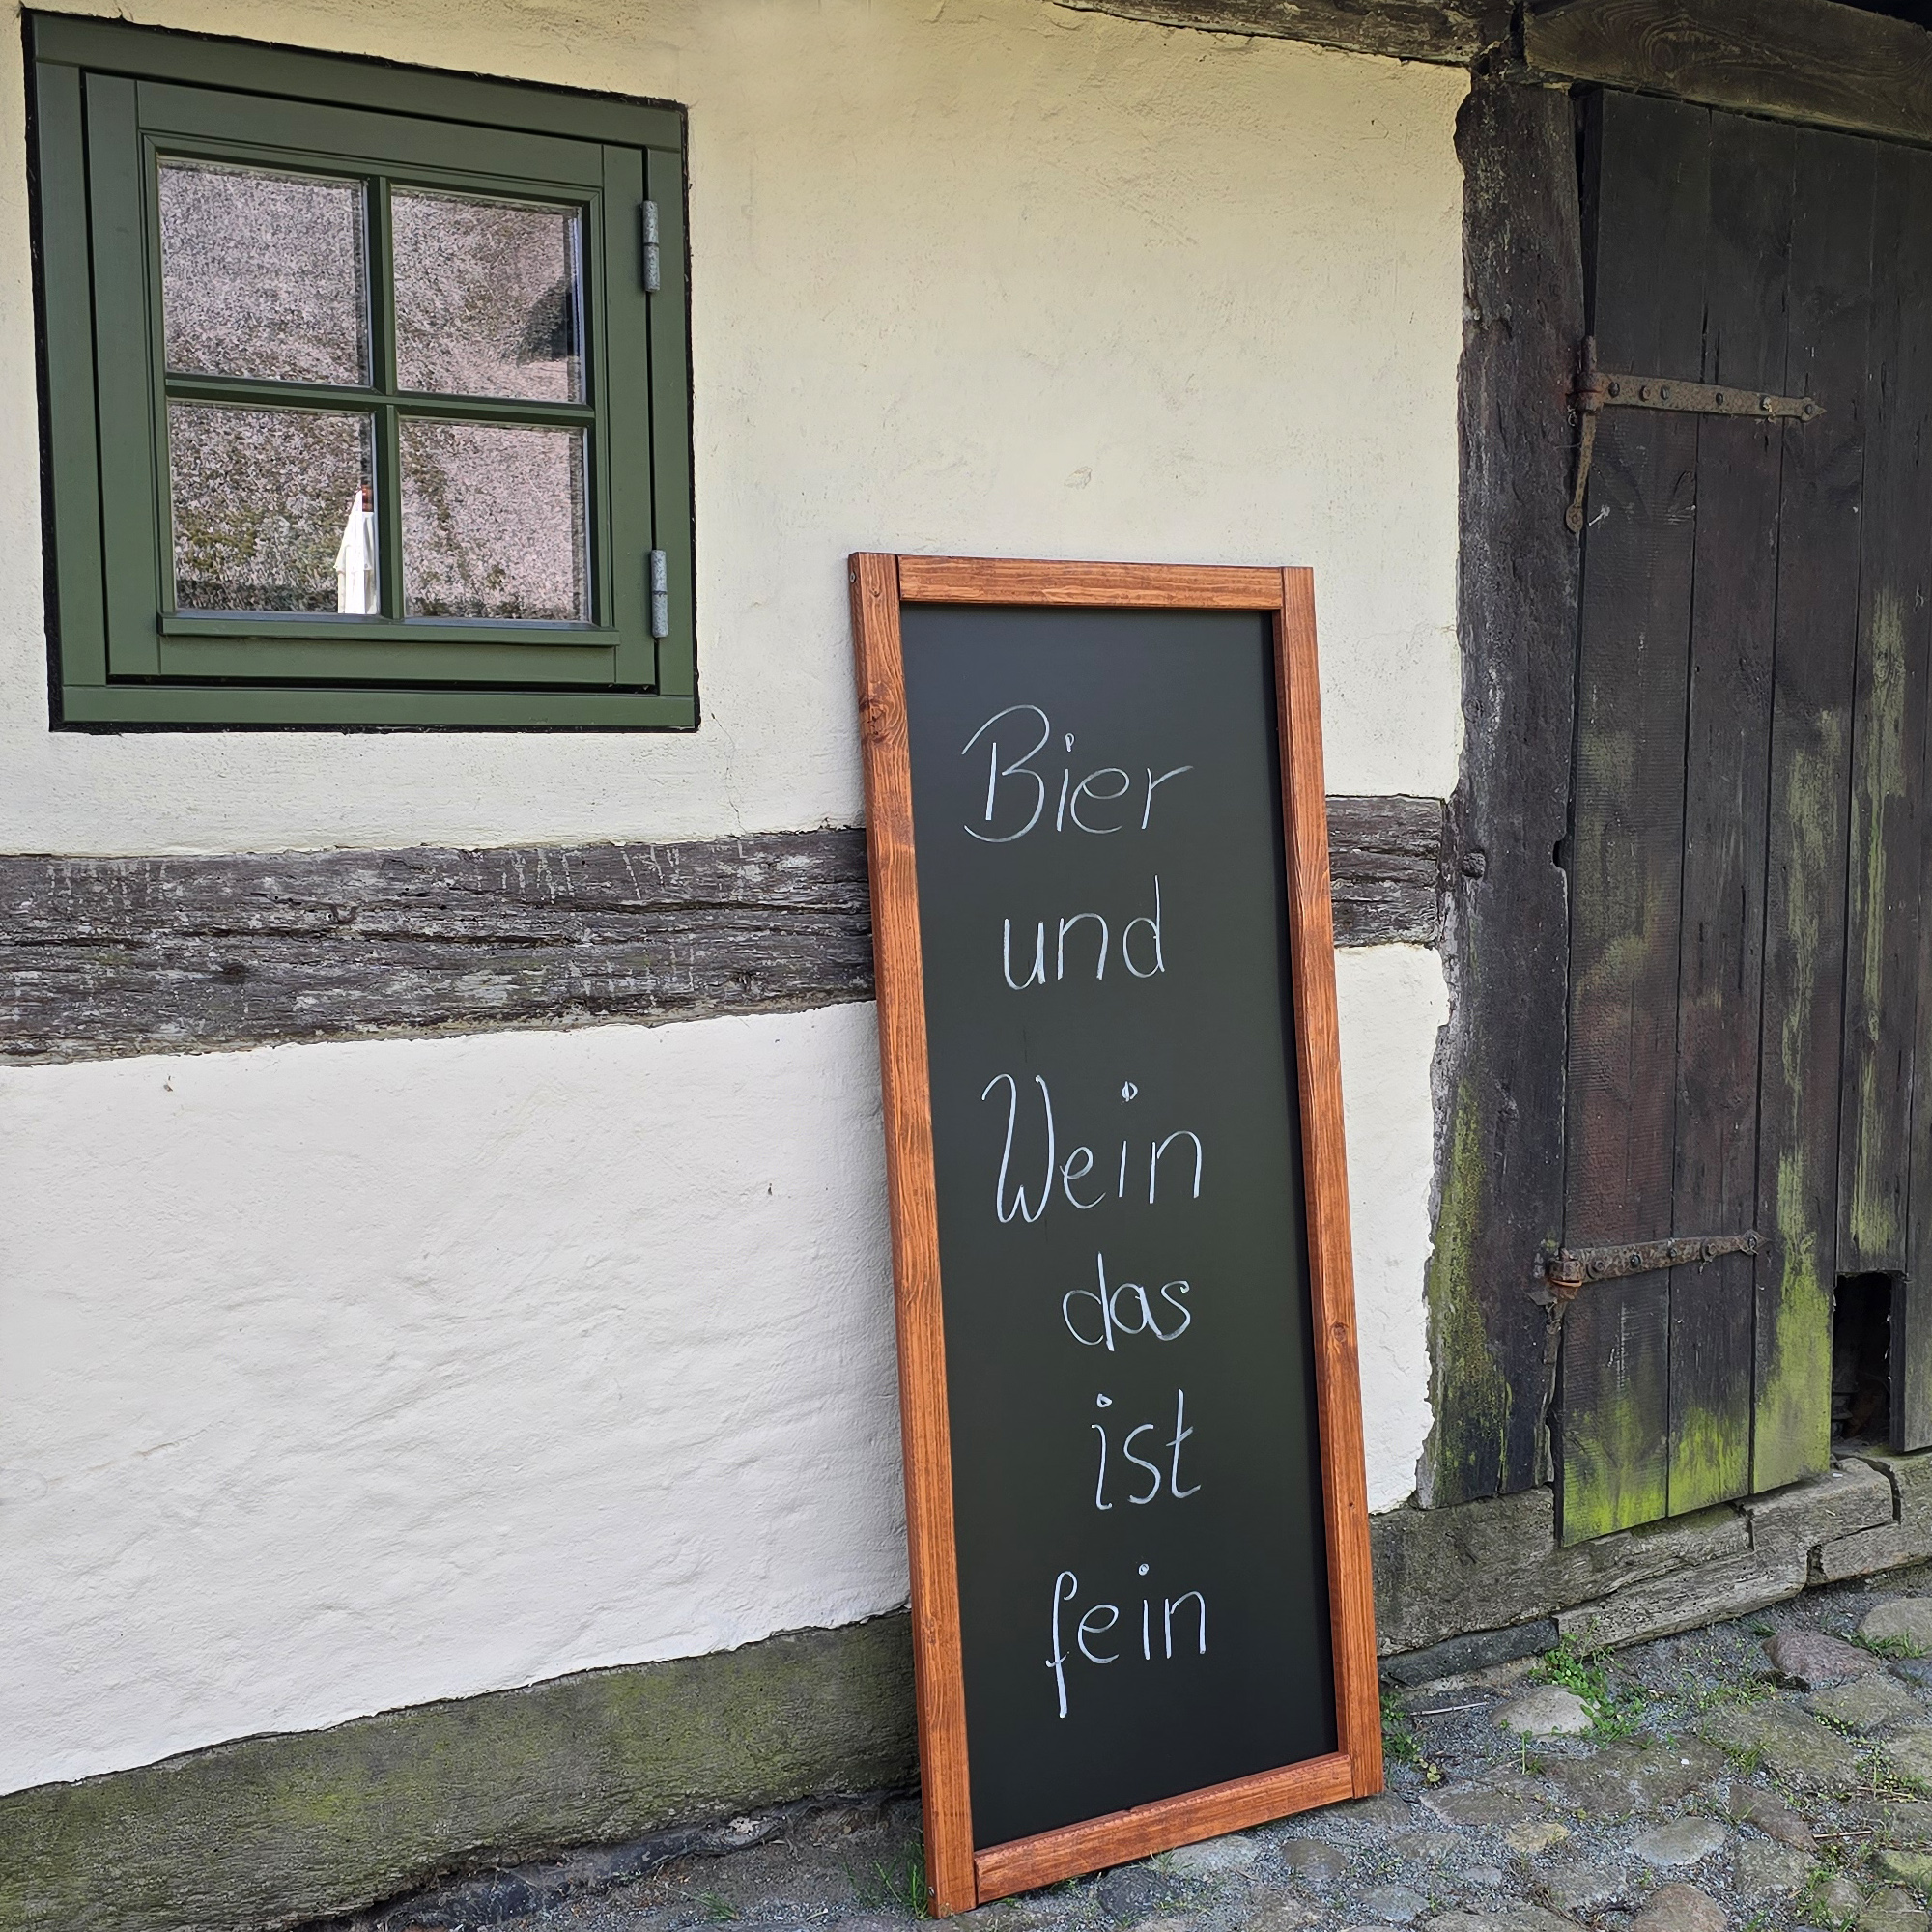 Bier
und
Wein
das
ist
fein